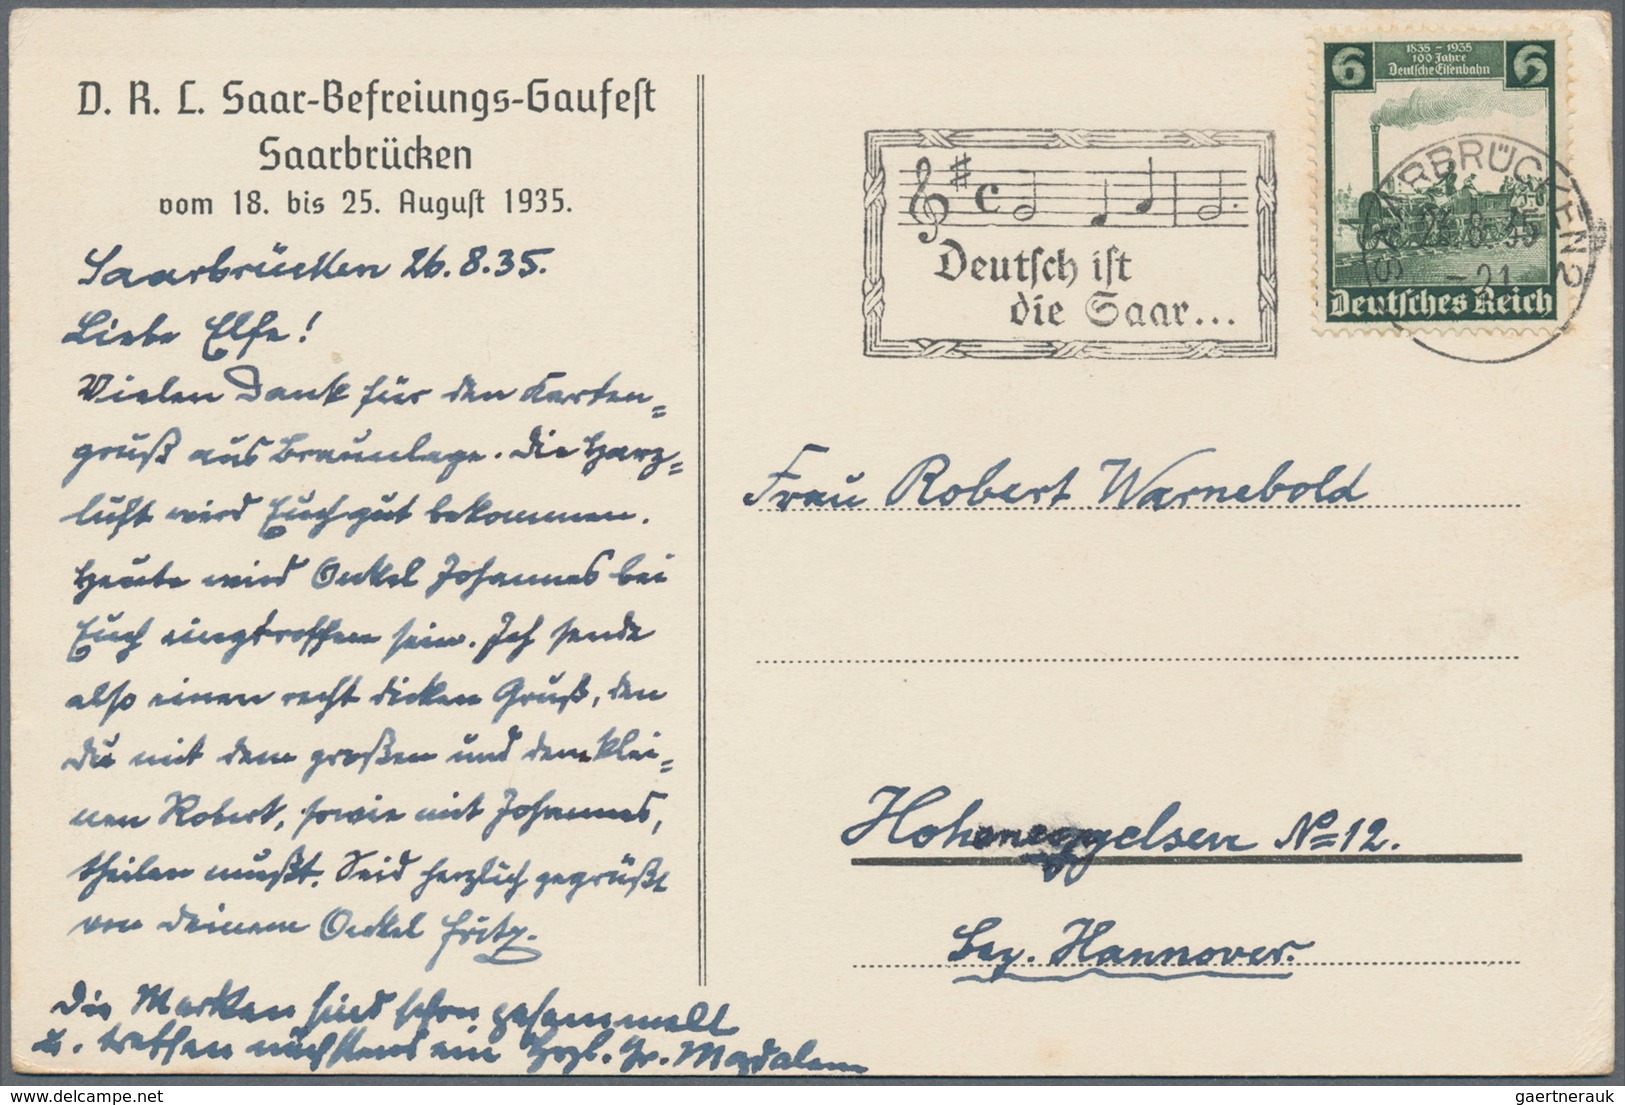 D. R. L. Saar-Befreiungs-Gaufest
Saarbrücken
vom 18. bis 25. August 1935.
Saarbrücken 26.8.35.
Liebe Else!
Vielen Dank für den Karten=
gruß aus Braunlage. Die Harz=
luft wird Euch gut bekommen.
Heute wird Onkel Johannes bei
Euch eingetroffen sein. Ich sende
also einen recht dicken Gruß, den
Du mit dem großen und dem klei=
nen Robert, sowie mit Johannes,
theilen mußt. Seid herzlich gegrüßt
von Deinem Onkel Fritz.
Die Marken sind schon gesammelt
u. treffen nächstens ein Hrzl. Gr. Magdalene
Deutsch ist
die Saar...
6 1835 - 1935 6
100 Jahre
Deutsche Eisenbahn
Deutsches Reich
SAARBRÜCKEN 2
26.8.35
-21
Frau Robert Warnebold
Hoheneggelsen No 12.
Bez. Hannover.
delcampe.net
gaertnerauk